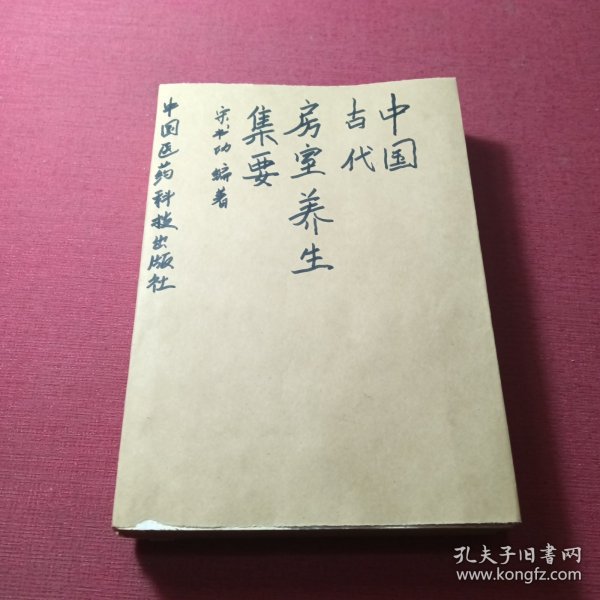 中国
古代
房室养生
集要
宋书功 编著
中国医药科技出版社
孔夫子旧书网
www.kongfz.com